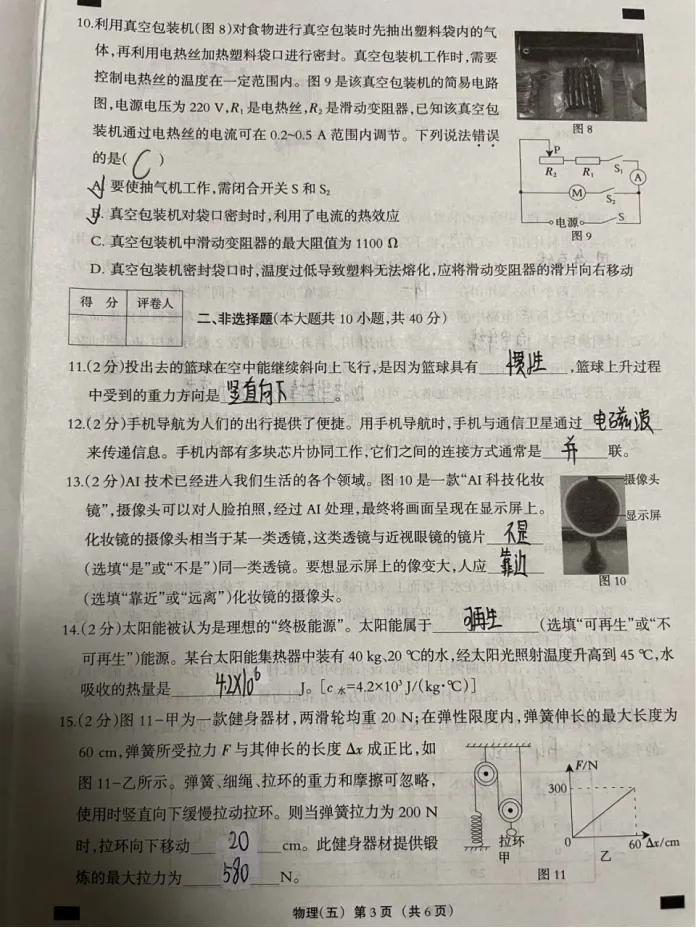 10.利用真空包装机(图8)对食物进行真空包装时先抽出塑料袋内的气
体,再利用电热丝加热塑料袋口进行密封。真空包装机工作时,需要
控制电热丝的温度在一定范围内。图9是该真空包装机的简易电路
图,电源电压为220 V,R₁是电热丝,R₂是滑动变阻器,已知该真空包
装机通过电热丝的电流可在0.2~0.5 A范围内调节。下列说法错误
的是( C )
图8
A. 要使抽气机工作,需闭合开关S和S₂
B. 真空包装机对袋口密封时,利用了电流的热效应
C. 真空包装机中滑动变阻器的最大阻值为1100 Ω
D. 真空包装机密封袋口时,温度过低导致塑料无法熔化,应将滑动变阻器的滑片向右移动
P
R₂ R₁ S₁ A
M S₂
电源 S
图9
得 分 评卷人
二、非选择题(本大题共10小题,共40分)
11.(2分)投出去的篮球在空中能继续斜向上飞行,是因为篮球具有 惯性 ,篮球上升过程
中受到的重力方向是 竖直向下 。
12.(2分)手机导航为人们的出行提供了便捷。用手机导航时,手机与通信卫星通过 电磁波
来传递信息。手机内部有多块芯片协同工作,它们之间的连接方式通常是 并 联。
13.(2分)AI技术已经进入我们生活的各个领域。图10是一款“AI科技化妆
镜”,摄像头可以对人脸拍照,经过AI处理,最终将画面呈现在显示屏上。
化妆镜的摄像头相当于某一类透镜,这类透镜与近视眼镜的镜片 不是
(选填“是”或“不是”)同一类透镜。要想显示屏上的像变大,人应 靠近
(选填“靠近”或“远离”)化妆镜的摄像头。
摄像头
显示屏
图10
14.(2分)太阳能被认为是理想的“终极能源”。太阳能属于 可再生 (选填“可再生”或“不
可再生”)能源。某台太阳能集热器中装有40 kg、20 ℃的水,经太阳光照射温度升高到45 ℃,水
吸收的热量是 4.2×10⁶ J。[c水=4.2×10³ J/(kg·℃)]
15.(2分)图11-甲为一款健身器材,两滑轮均重20 N;在弹性限度内,弹簧伸长的最大长度为
60 cm,弹簧所受拉力F与其伸长的长度Δx成正比,如
图11-乙所示。弹簧、细绳、拉环的重力和摩擦可忽略,
使用时竖直向下缓慢拉动拉环。则当弹簧拉力为200 N
时,拉环向下移动 20 cm。此健身器材提供锻
炼的最大拉力为 580 N。
拉环
甲
F/N
300
0 60 Δx/cm
乙
图11
物理(五) 第3页 (共6页)